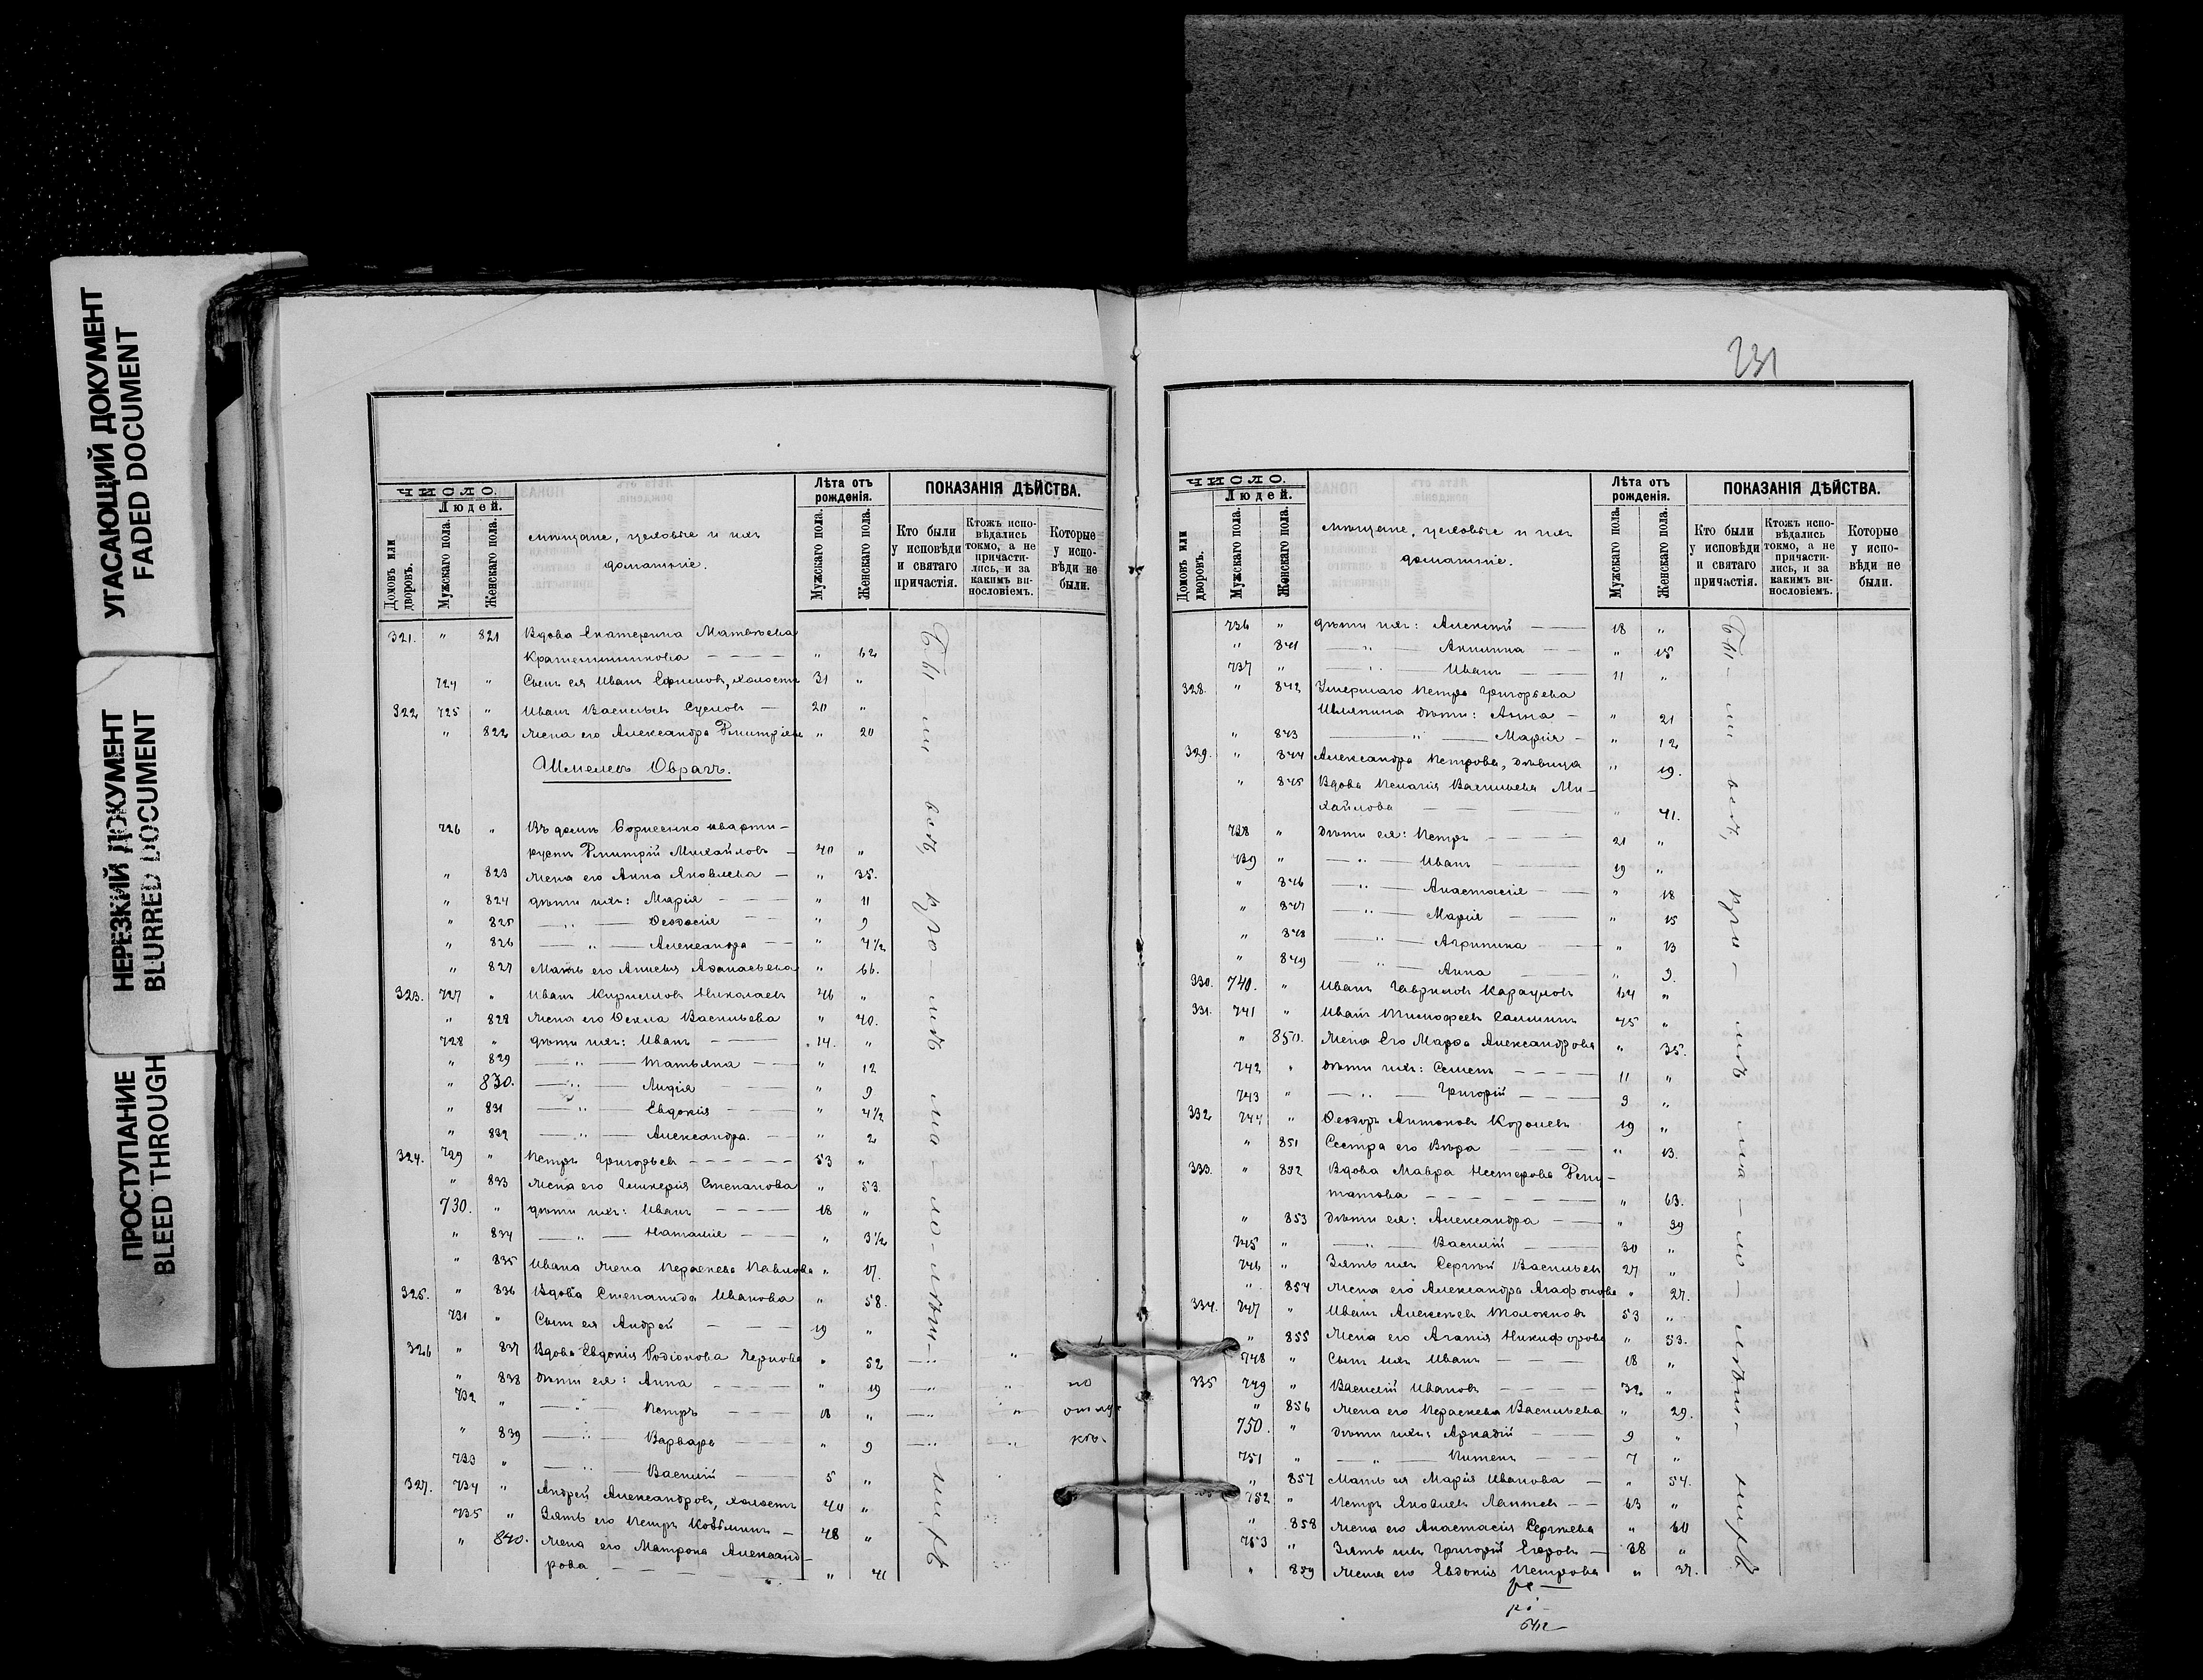 УГАСАЮЩИЙ ДОКУМЕНТ
FADED DOCUMENT
НЕРЕЗКИЙ ДОКУМЕНТ
BLURRED DOCUMENT
ПРОСТУПАНИЕ
BLEED THROUGH
ЧИСЛО.
Людей.
Домовъ или дворовъ.
Мужскаго пола.
Женскаго пола.
Мѣщане, цеховые и ихъ
домашніе.
Лѣта отъ рожденія.
Мужскаго пола.
Женскаго пола.
ПОКАЗАНІЯ ДѢЙСТВА.
Кто были у исповѣди и святаго причастія.
Ктожъ исповѣдались токмо, а не причастились, и за какимъ винословіемъ.
Которые у исповѣди не были.
321. " 821 Вдова Екатерина Матвѣева
Крашенинникова " 62
724 " Сынъ ея Иванъ Ефимовъ, холостъ 31 "
322 725 " Иванъ Васильевъ Сусловъ 20 "
" 822 Жена его Александра Дмитріева " 20
Шмелевъ Оврагъ.
726 " Въ домѣ Борисенко кварти-
руетъ Дмитрій Михайловъ 40 "
" 823 Жена его Анна Яковлева " 35.
" 824 дѣти ихъ: Марія " 11
" 825 " Ѳеодосія " 9
" 826 " Александра " 4½
" 827 Мать его Аѳанасьева " 66.
323. 727 " Иванъ Кирилловъ Николаевъ 46 "
" 828 Жена его Ѳекла Васильева " 40.
728 " дѣти ихъ: Иванъ 14. "
" 829 " Татьяна " 12
" 830. " Лидія " 9
" 831 " Евдокія " 4½
" 832 " Александра. " 2
324. 729 " Петръ Григорьевъ 53 "
" 833 Жена его Гликерія Степанова " 53.
730. " дѣти ихъ: Иванъ 18 "
" 834 " Наталія " 3½
" 835 Ивана жена Параскева Павлова " 17.
325. " 836 Вдова Степанида Иванова " 58.
731 " Сынъ ея Андрей 19 "
326 " 837 Вдова Евдокія Родіонова Чернова " 52 " "
" 838 дѣти ея: Анна " 19 " " по
732 " " Петръ 18 " " " отлуч
" 839 " Варвара " 9 " " кѣ.
733 " " Василій 5 "
327. 734 " Андрей Александровъ, холостъ 40 "
735 " Зять его Петръ 48 "
" 840. Жена его Матрона Александ-
рова " 41
Бы ли всѣ, кро мѣ ма-ло-лѣт-нихъ
231
ЧИСЛО.
Людей.
Домовъ или дворовъ.
Мужскаго пола.
Женскаго пола.
Мѣщане, цеховые и ихъ
домашніе.
Лѣта отъ рожденія.
Мужскаго пола.
Женскаго пола.
ПОКАЗАНІЯ ДѢЙСТВА.
Кто были у исповѣди и святаго причастія.
Ктожъ исповѣдались токмо, а не причастились, и за какимъ винословіемъ.
Которые у исповѣди не были.
736 " дѣти ихъ: Алексѣй 18 "
" 841 " Акилина " 15
737 " " Иванъ 11 "
328. " 842 Умершаго Петра Григорьева
дѣти: Анна " 21
" 843 " Марія " 12
329. " 844 Александра Петрова, дѣвица " 19.
" 845 Вдова Пелагія Васильева Ми-
хайлова " 41.
738 " дѣти ея: Петръ 21 "
739 " " Иванъ 19 "
" 846 " Анастасія " 18
" 847 " Марія " 15
" 848 " Агрипина " 13
" 849 " Анна " 9.
330. 740. " Иванъ Гавриловъ Карауловъ 64 "
331. 741 " Иванъ Тимофеевъ 45 "
" 850. Жена Его Марѳа Александрова " 35.
742 " дѣти ихъ: Семенъ 11 "
743 " " Григорій 9 "
332 744 " Ѳеодоръ Антоновъ Королевъ 19 "
" 851 Сестра его Вѣра " 13.
333. " 852 Вдова Мавра Нестерова
" 63.
" 853 дѣти ея: Александра " 39
745 " " Василій 30 "
746 " Зять ихъ Сергѣй Васильевъ 27 "
" 854 Жена его Александра Агафонова " 27.
334. 747 " Иванъ Алексѣевъ Толокновъ 53 "
" 855 Жена его Агапія Никифорова " 53.
748 " Сынъ ихъ Иванъ 18 "
335 749 " Василій Ивановъ 32 "
" 856 Жена его Параскева Васильева " 29.
750. " дѣти ихъ: Аркадій 9 "
751 " " Пименъ 7 "
" 857 Мать ея Марія Иванова " 54.
752 " Петръ Яковлевъ Лаптевъ 63 "
" 858 Жена его Анастасія Сергѣева " 60
753 " Зять ихъ Григорій Егоровъ 38 "
" 859 Жена его Евдокія Петрова " 37.
Бы-ли всѣ, кро-мѣ ма-ло-лѣт-нихъ